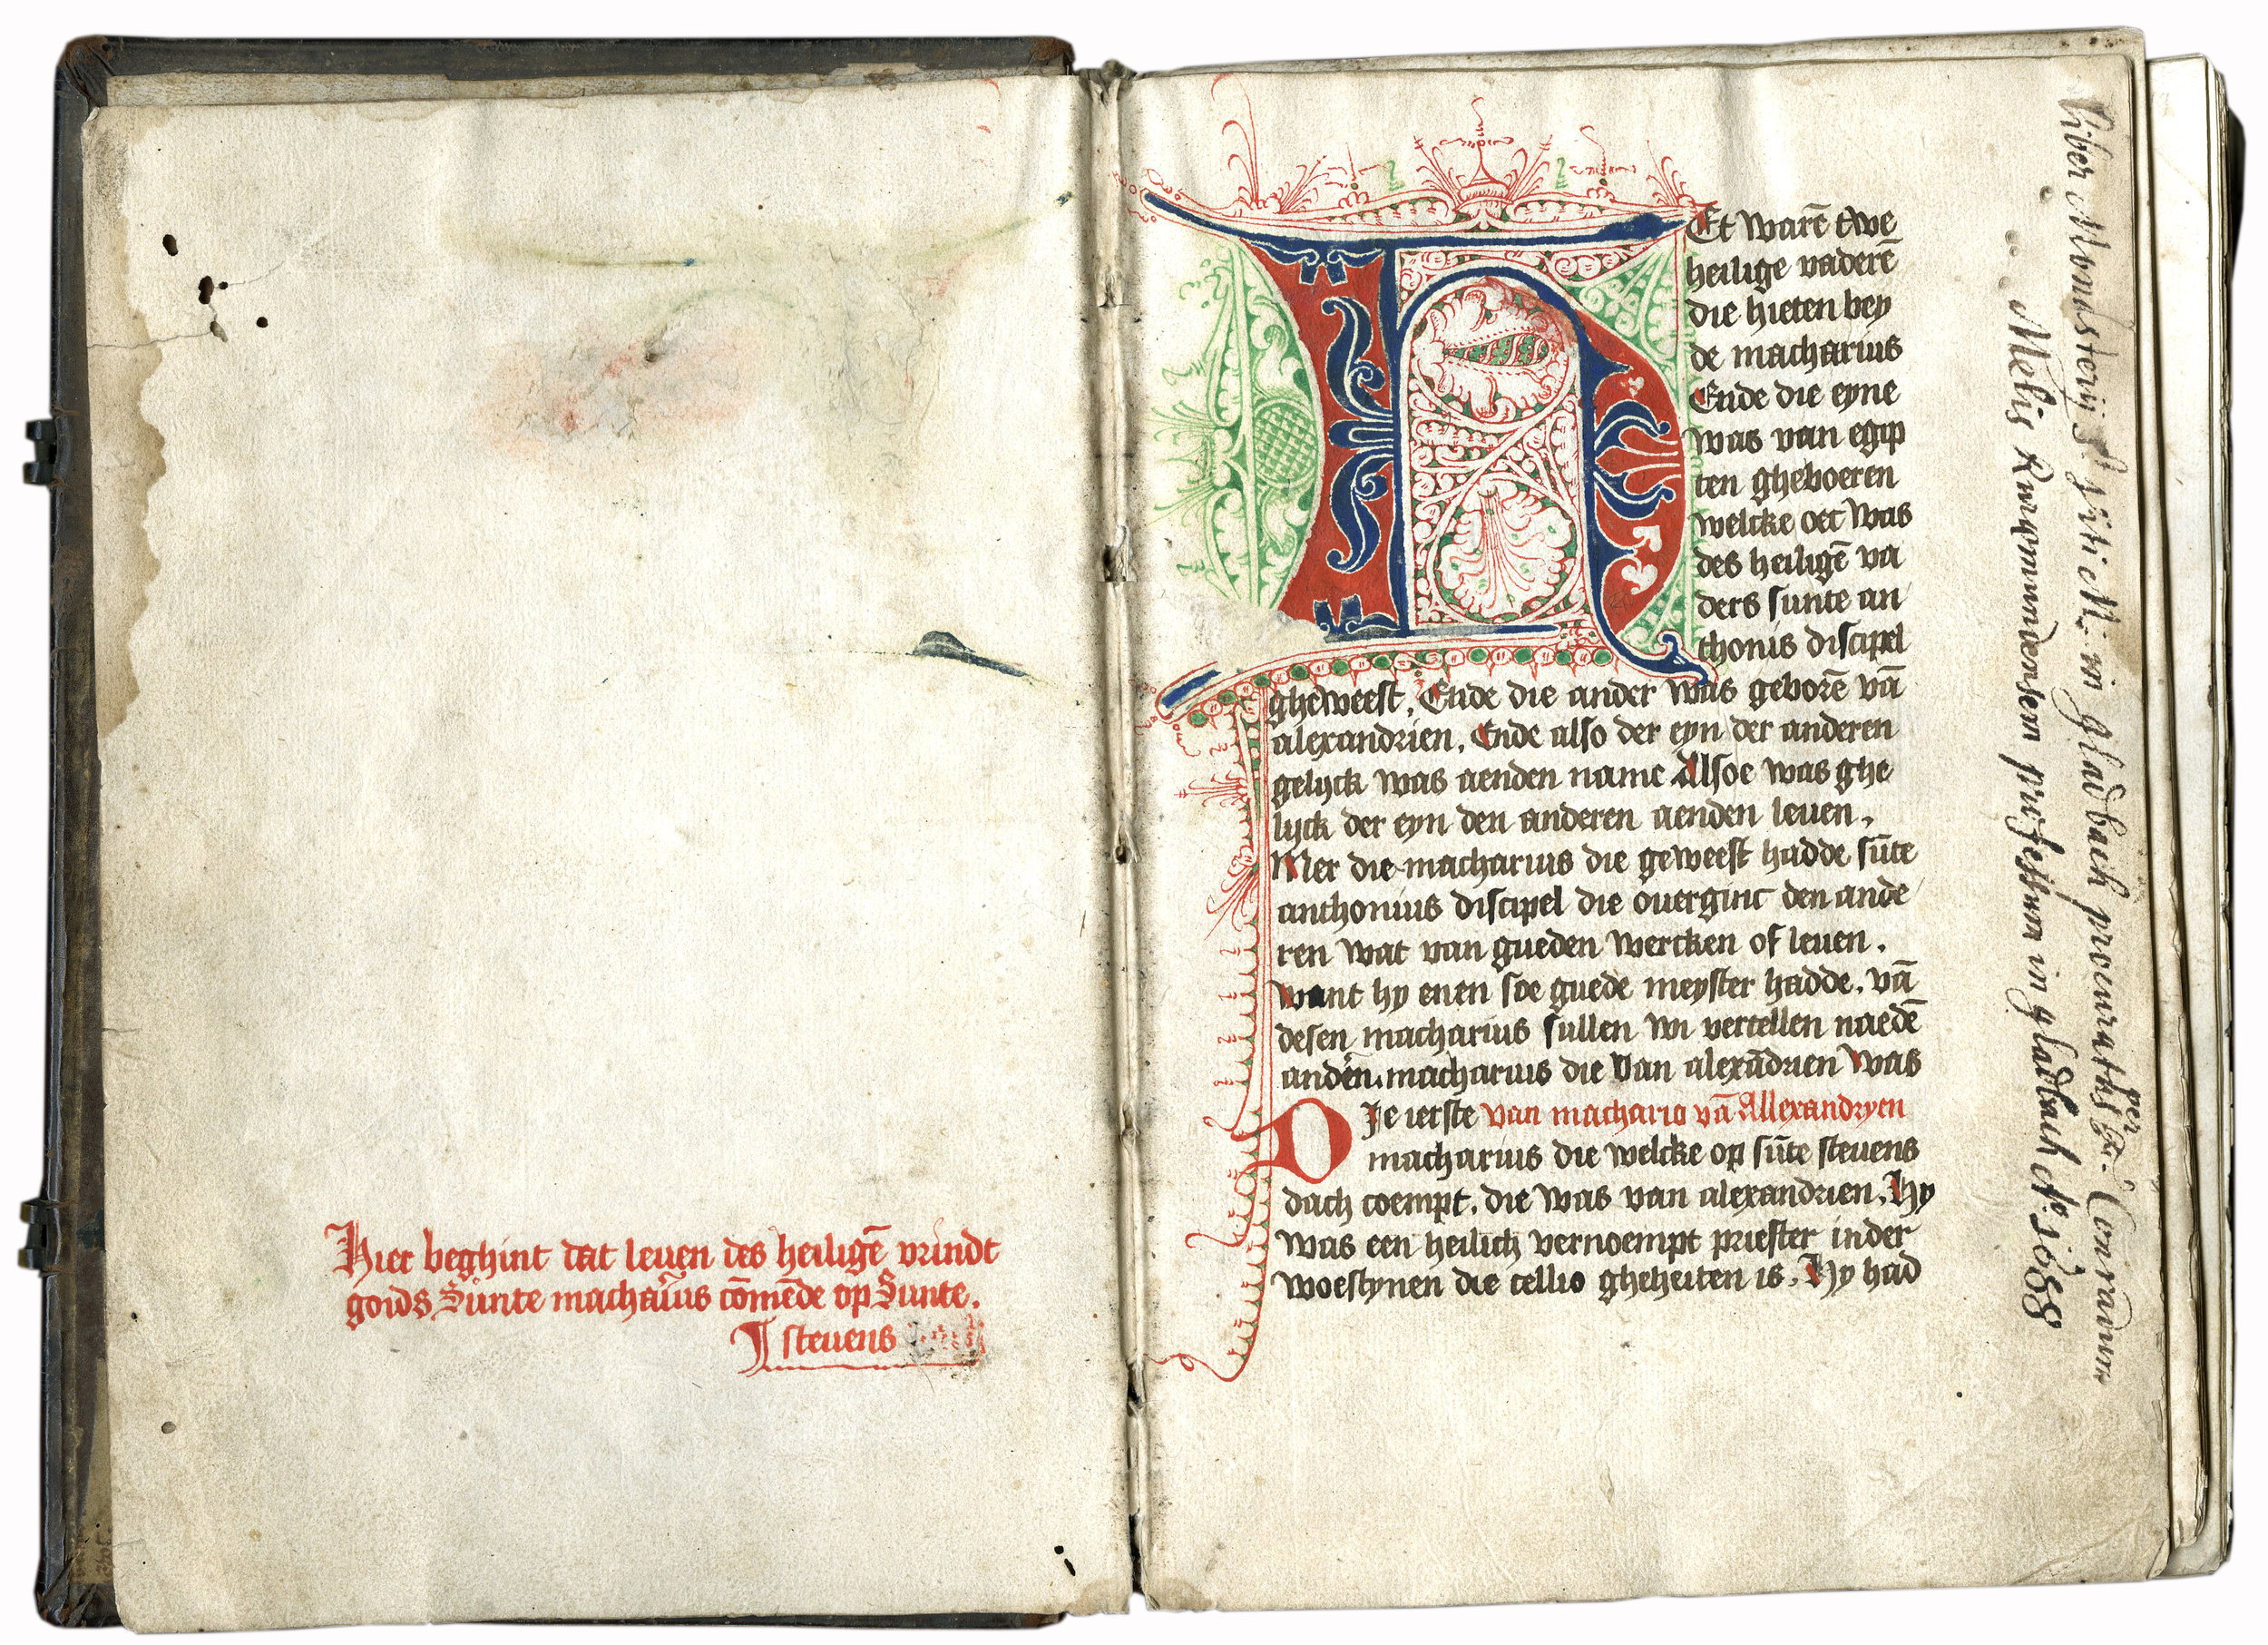 Hier beghint dat leuen des heiligē vrindt
goids Sunte machariꝰ cōmēde op Sunte.
steuens
Et warē twe
heilige vaderē
die hieten bey
de macharius
Ende die eyne
was van egip
ten gheboeren
welcke oec was
des heiligē va
ders sunte an
thonis discipel
gheweest. Ende die ander was geborē vā
alexandrien. Ende also der eyn der anderen
gelyck was aenden name Alsoe was ghe
lyck der eyn den anderen aenden leuen.
Mer die macharius die geweest hadde sūte
anthonius discipel die ouerginc den ande
ren wat van gueden wercken of leuen.
want hy enen soe guede meyster hadde. vā
desen macharius sullen wi vertellen naedē
anderen macharius die van alexādrien was
DJe ierste van machario vā Allexandryen
macharius die welcke op sūte steuens
dach coempt. die was van alexandrien. Hy
was een heilich vernoempt priester inder
woestynen die cellio gheheiten is. Hy had
Liber Monasterij S. Viti M. in gladbach procuratus per fr. Conradum
Melis Ruremundensem professum in gladbach Aº. 1688